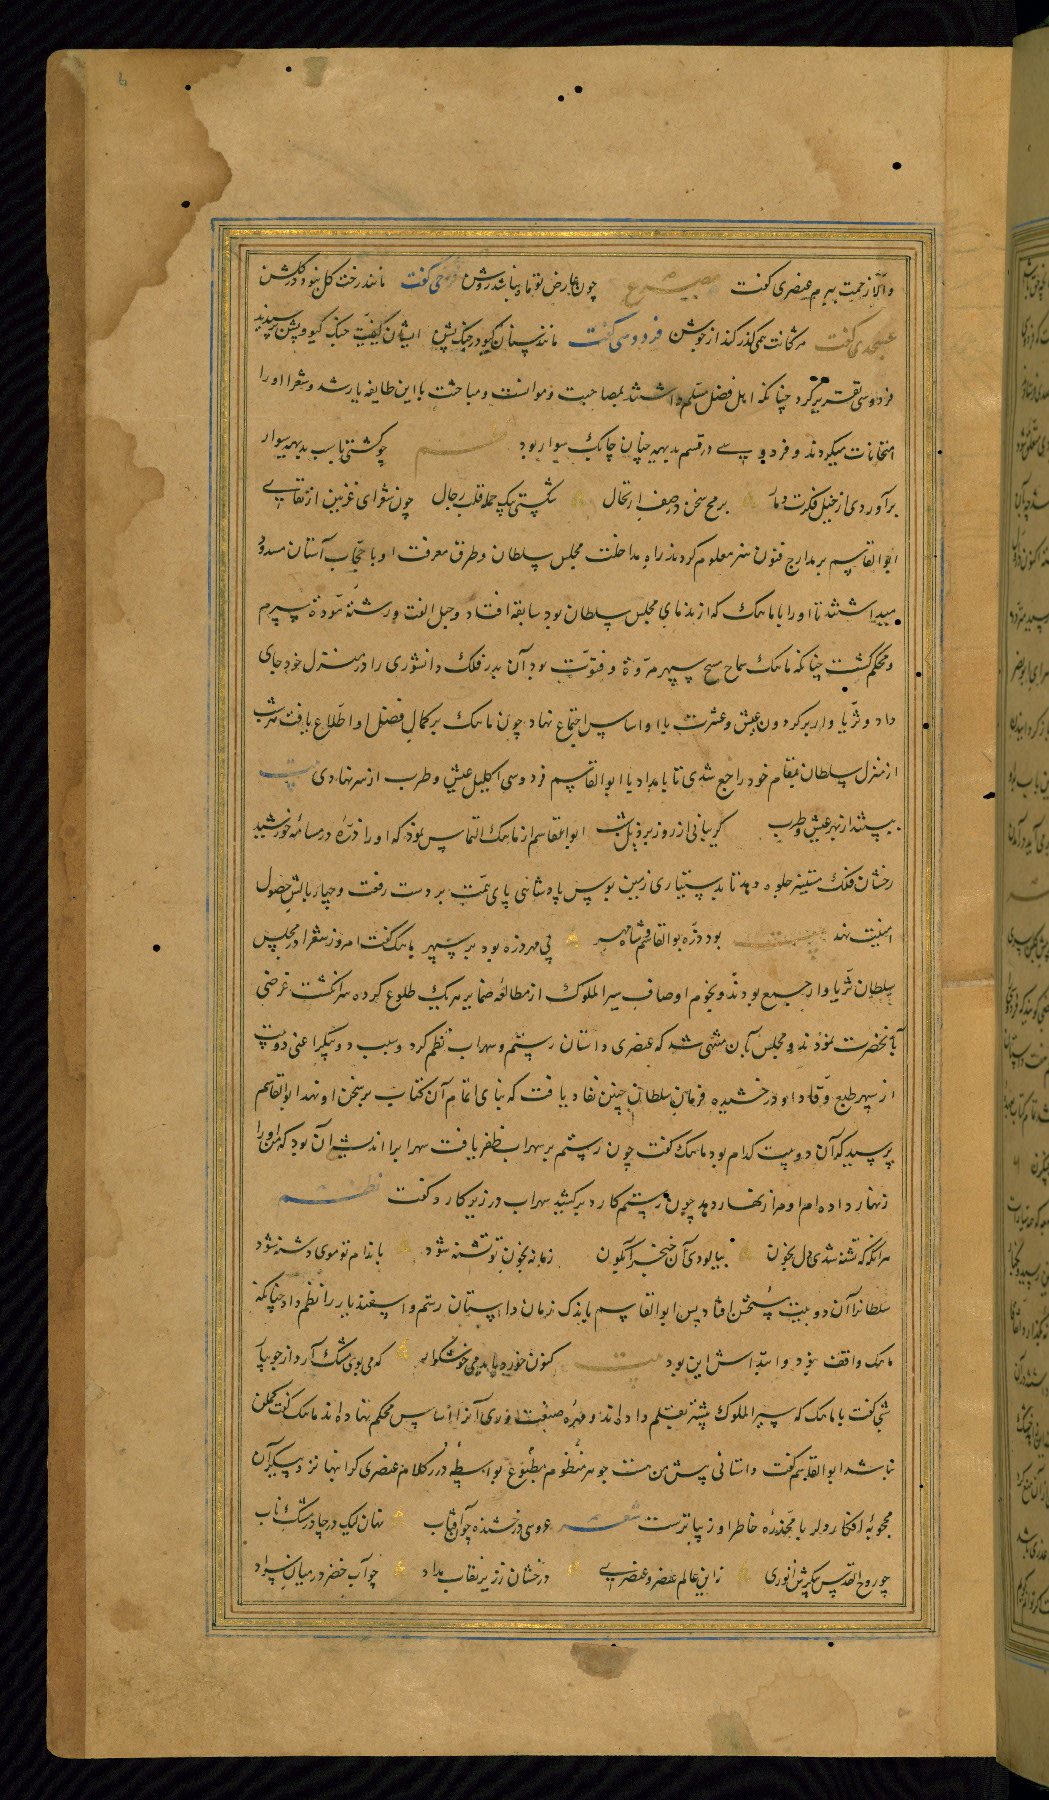 و الا زحمت ببریم عنصری گفت مصرع چون عارض تو ماه نباشد روشن فرخی گفت مانند رخت گل نبود در گلشن
عسجدی گفت مژگانت همی گذر کند از جوشن فردوسی گفت مانند سنان گیو در جنگ پشن ایشان کیفیت جنگ گیو و پشن پرسیدند
فردوسی تقریر کرد چنانکه اهل فضل مسلم داشتند بمصاحبت و موانست و مباحثت با این طایفه یار شد و شعرا او را
امتحانات میکردند و فردوسی در قسم بدیهه چنان چابک سوار بود چو گشتی بر اسب بدیهه سوار
برآوردی از خیل فکرت دمار برمح سخن در صف ارتحال شکستی بیک حمله قلب رجال چون شعرای غزنین از تقای
ابوالقاسم بر مدارج فنون هنر معلوم کردند راه مداخلت مجلس سلطان و طرق معرفت او با حجاب آستان مسدود
میداشتند تا او را با ماهک که از ندمای مجلس سلطان بود سابقه افتاد و حبل الفت و رشته مودة مبرم
و محکم گشت چنانکه ماهک سماح سپهر مروة و فتوت بود آن بدر فلک دانشوری را در منزل خود جای
داد و ثریا وار بر گردون عیش و عشرت با او اساس اجتماع نهاد چون ماهک بر کمال فضل او اطلاع یافت هر شب
از منزل سلطان بمقام خود راجع شدی تا بامداد با ابوالقاسم فردوسی اکلیل عیش و طرب از سر نهادی بیت
ببستند از بهر عیش و طرب گریبانی از روز بر ذیل شب ابوالقاسم از ماهک التماس نمود که او را ذره در مسامه خورشید
رخشان فلک جلوه دهد تا بدستیاری زمین بوس پادشاهی پای همت بر دست رفعت و چهار بالش حصول
امنیت نهد بیت بود ذره بوالقاسم شاه مهر پی مهر ذره بود بر سپهر ماهک گفت امروز شعرا در مجلس
سلطان ثریا وار جمیع بودند و نجوم اوصاف سیر الملوک از مطالعه ضمایر هر یک طلوع کرده سرانگشت عرضی
بآنحضرت نمودند و مجلس بآن منتهی شد که عنصری داستان رستم و سهراب نظم کرد و سبب دو پیکرا عنی دو بیت
از سپهر طبع وقاد او درخشیده فرمان سلطانی چنین نفاد یافت که بنای اتمام آن کتاب بر سخن او نهد ابوالقاسم
پرسید که آن دو بیت کدام بود ماهک گفت چون رستم بر سهراب ظفر یافت سهراب را اندیشه آن بود که من او را
زنهار داده ام او مرا زنهار دهد چون رستم کارد برکشید سهراب در زیر کارد گفت نظم
هر آنگه که تشنه شدی دل بخون بیالودی آن خنجر آبگون زمانه بخون تو تشنه شود باندام تو موی دشنه شود
سلطانرا آن دو بیت مستحسن افتاد پس ابوالقاسم باندک زمان داستان رستم و اسفندیار را نظم داد چنانکه
ماهک واقف نبود و ابتداش این بود بیت کنون خورد باید می خوشگوار که می بوی مشک آرد از جویبار
شبی گفت با ماهک که سیر الملوک بیشتر بقلم داده اند و آنرا اساس محکم نهاده اند ماهک گفت ممکن
نباشد ابوالقاسم گفت داستانی پیش من هست جوهر منظوم مطبوع بواسطه درر کلام عنصری گرانبها تر و پیکر آن
محجوبه افکار دلربا مخدره خاطر او زیباترست شعر عروسی درخشنده چون آفتاب نهان لیک در چادر مشک ناب
چو روح القدس پیکرش انوری ز این عالم عنصر و عنصری درخشان ز زیر نقاب مداد چو آب خضر در میان سواد